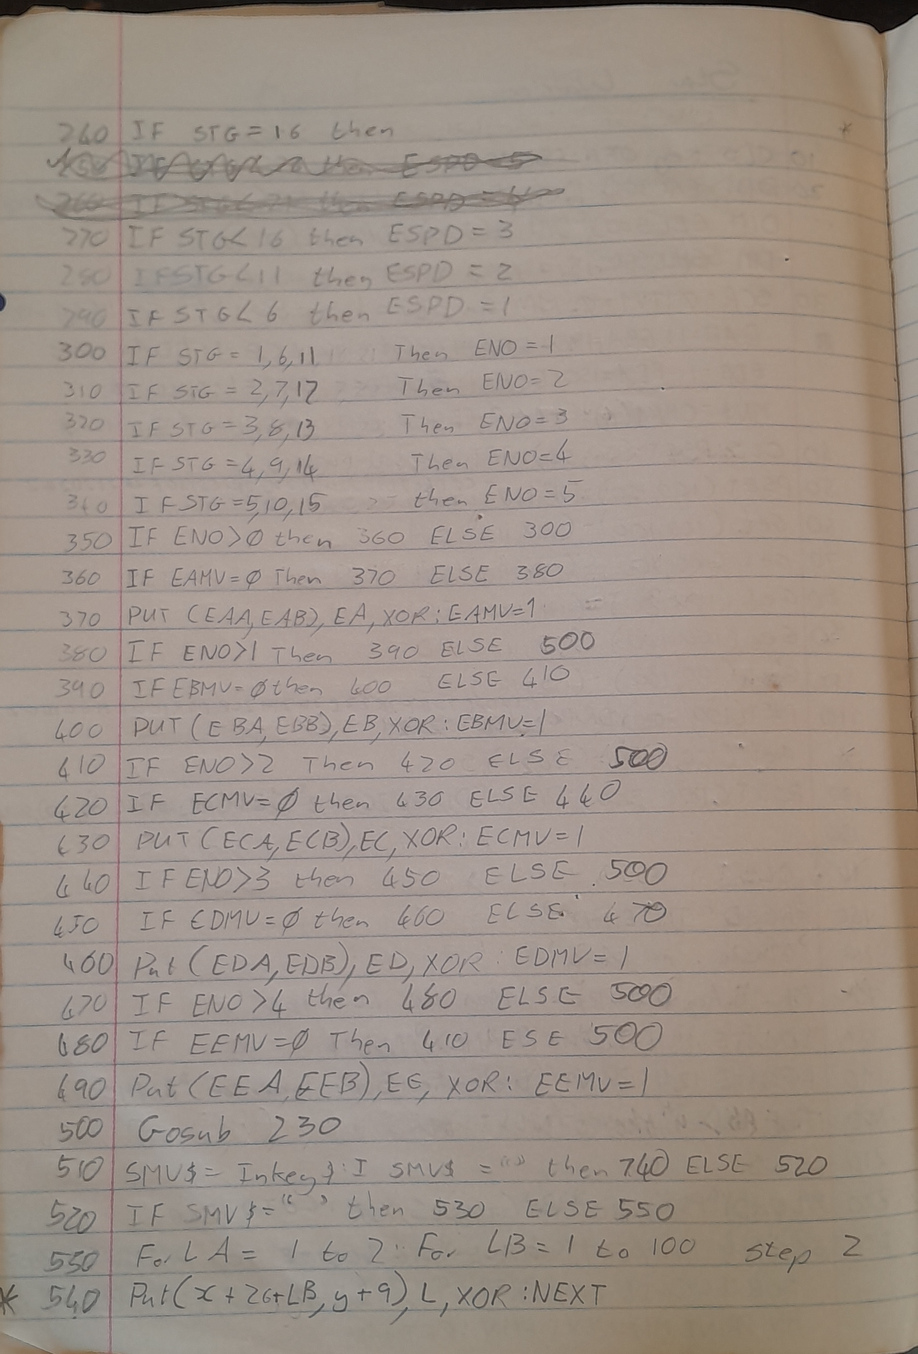 260 IF STG=16 then
IF STG< then ESPD=5
260 IF STG<21 then ESPD=4
270 IF STG<16 then ESPD=3
280 IFSTG<11 then ESPD=2
290 IF STG<6 then ESPD=1
300 IF STG=1,6,11 Then ENO=1
310 IF STG=2,7,12 Then ENO=2
320 IF STG=3,8,13 Then ENO=3
330 IF STG=4,9,14 Then ENO=4
340 IF STG=5,10,15 then ENO=5
350 IF ENO>0 then 360 ELSE 300
360 IF EAMV=0 Then 370 ELSE 380
370 PUT (EAA,EAB),EA,XOR:EAMV=1
380 IF ENO>1 Then 390 ELSE 500
390 IF EBMV=0 then 400 ELSE 410
400 PUT (EBA,EBB),EB,XOR:EBMV=1
410 IF ENO>2 Then 420 ELSE 500
420 IF ECMV=0 then 430 ELSE 440
430 PUT (ECA,ECB),EC,XOR:ECMV=1
440 IF ENO>3 then 450 ELSE 500
450 IF EDMV=0 then 460 ELSE 470
460 Put (EDA,EDB),ED,XOR:EDMV=1
470 IF ENO>4 then 480 ELSE 500
480 IF EEMV=0 Then 410 ESE 500
490 Put (EEA,EEB),EE,XOR:EEMV=1
500 Gosub 230
510 SMV$=Inkey$:I SMV$ ="" then 740 ELSE 520
520 IF SMV$=" " then 530 ELSE 550
530 For LA=1 to 2:For LB=1 to 100 step 2
* 540 Put(x+26+LB,y+9),L,XOR:NEXT